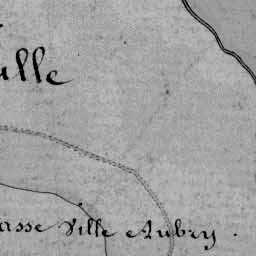 ulle
asse Ville Aubry.